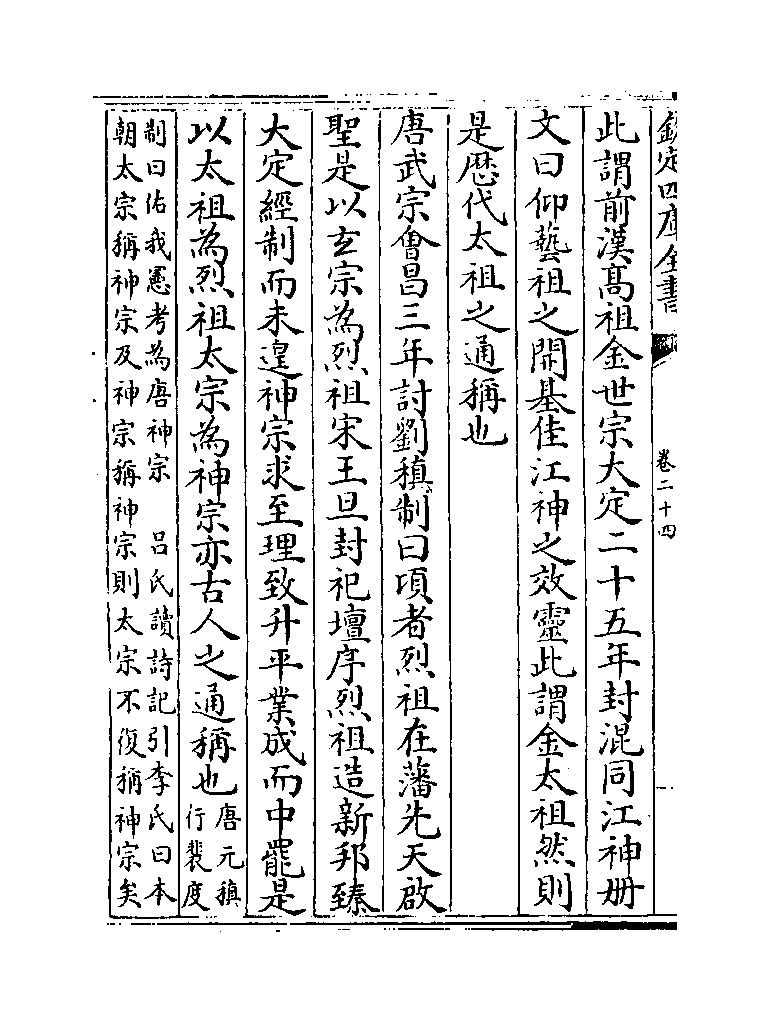 欽定四庫全書
卷二十四
此謂前漢髙祖金世宗大定二十五年封混同江神册
文曰仰藝祖之開基佳江神之效靈此謂金太祖然則
是歴代太祖之通稱也
唐武宗會昌三年討劉稹制曰頃者烈祖在藩先天啟
聖是以玄宗為烈祖宋王旦封祀壇序烈祖造新邦臻
大定經制而未遑神宗求至理致升平業成而中罷是
以太祖為烈祖太宗為神宗亦古人之通稱也唐元稹
行裴度
制曰佑我憲考為唐神宗 吕氏讀詩記引李氏曰本
朝太宗稱神宗及神宗稱神宗則太宗不復稱神宗矣